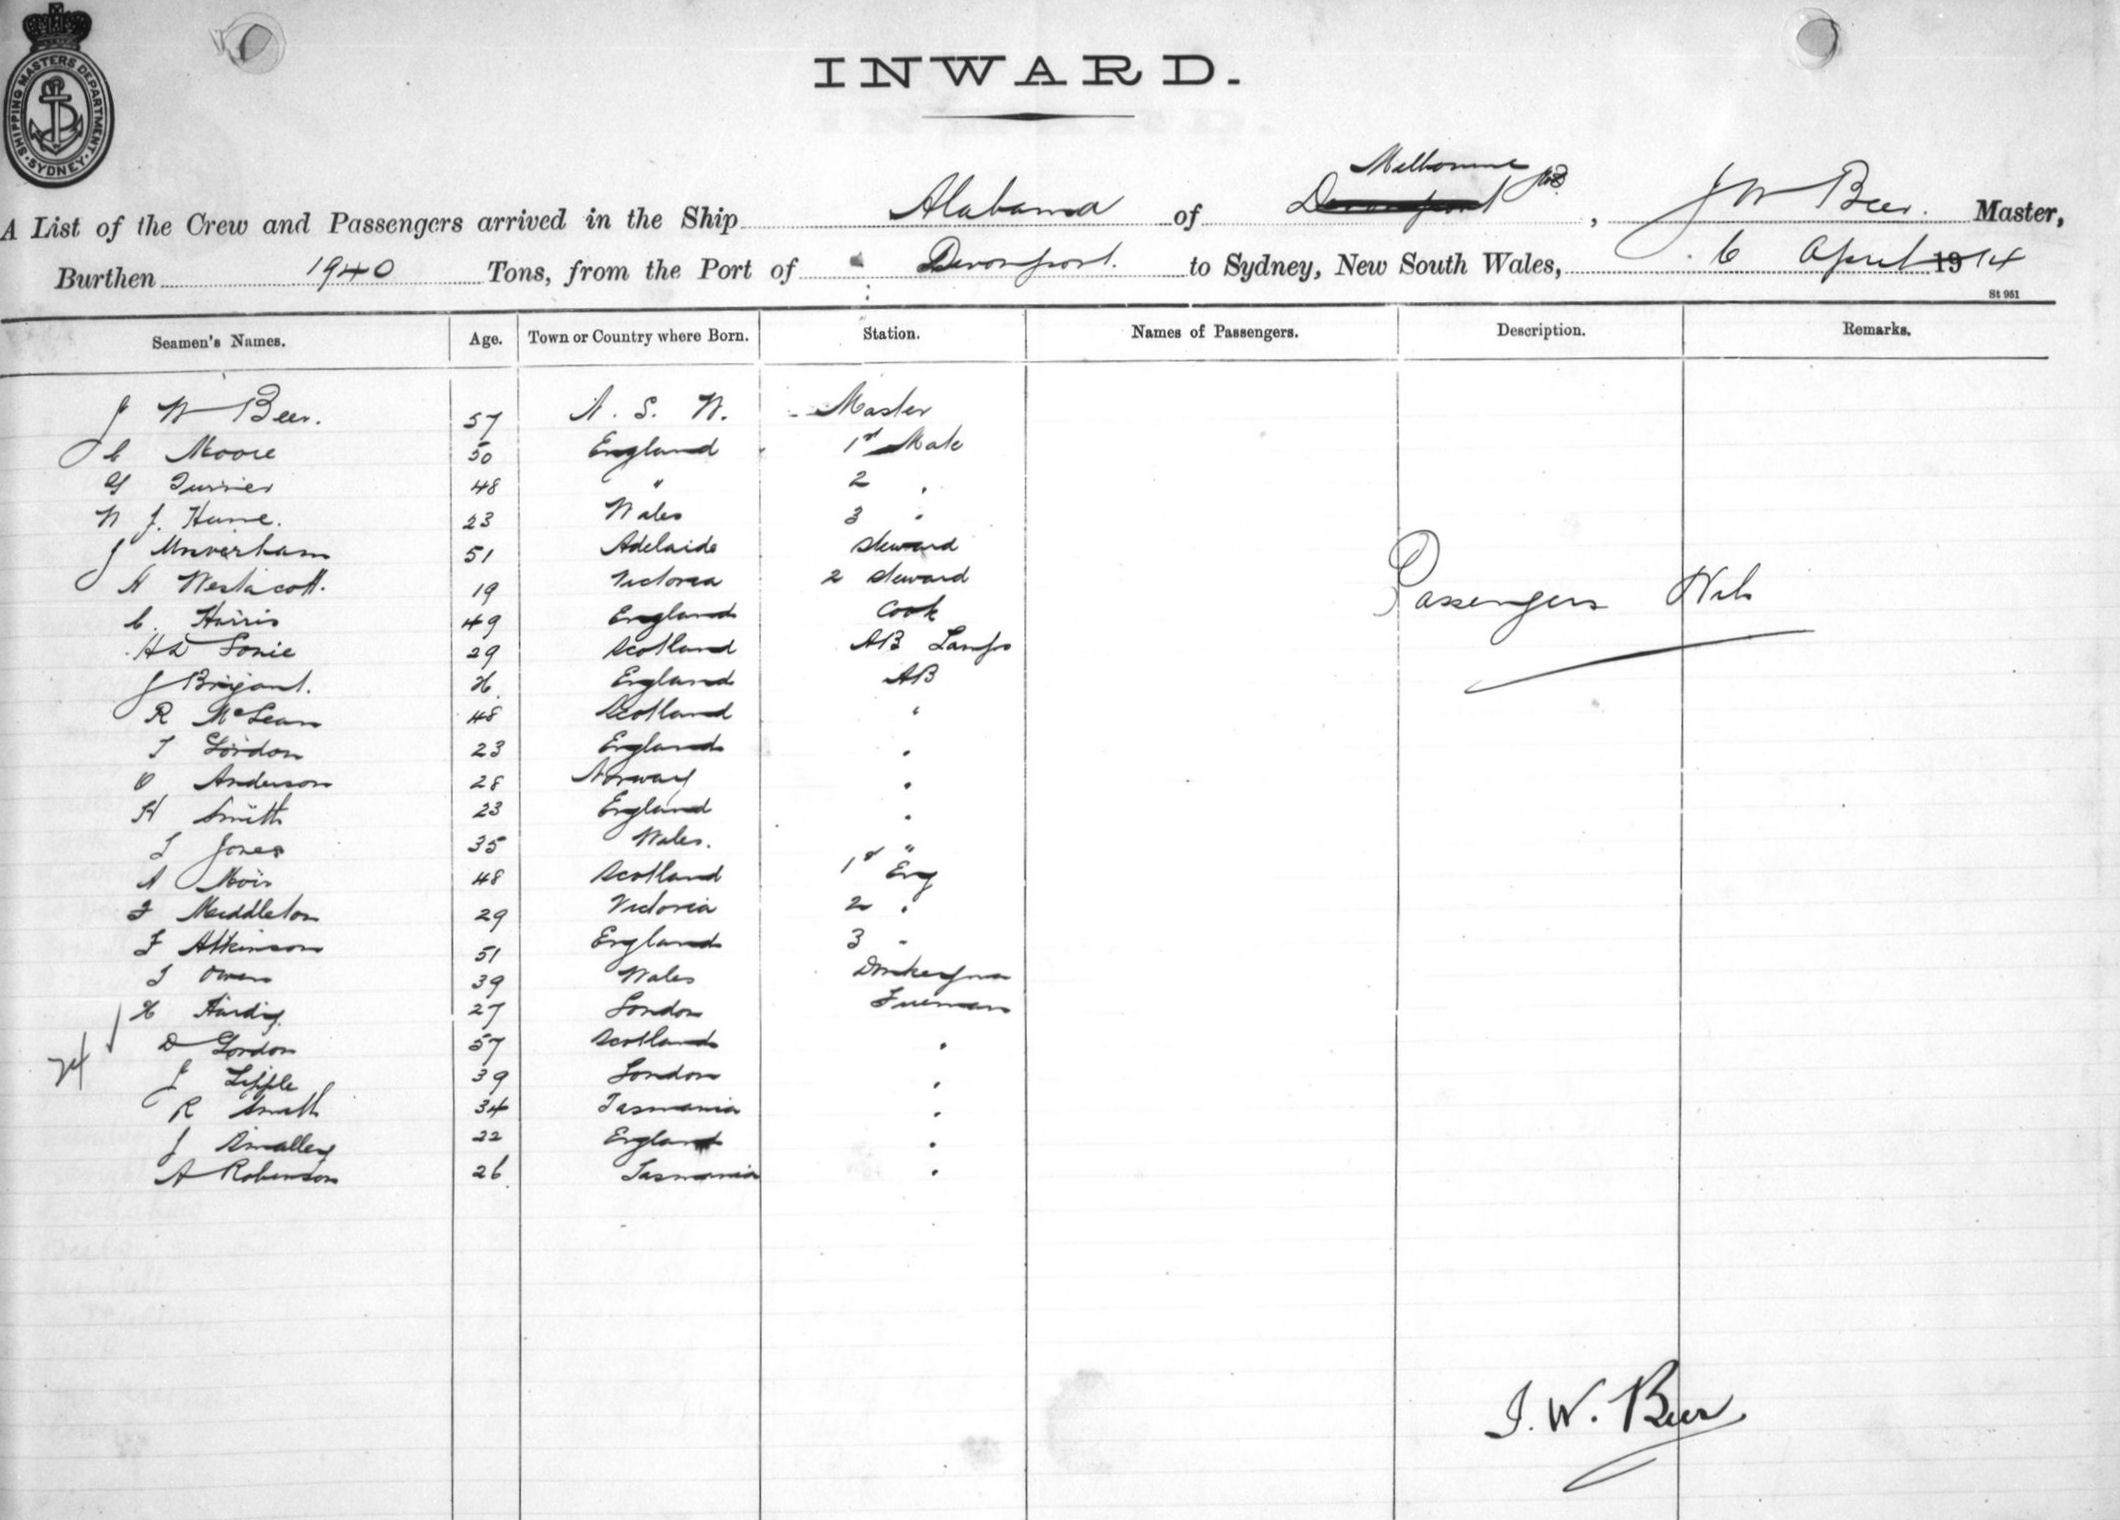 SHIPPING MASTERS DEPARTMENT
SYDNEY
INWARD.
A List of the Crew and Passengers arrived in the Ship Alabama of Devonport Melbourne JWB, J W Beer. Master,
Burthen 1940 Tons, from the Port of Devonport. to Sydney, New South Wales, 6 April 1914
St 951
Seamen's Names. Age. Town or Country where Born. Station. Names of Passengers. Description. Remarks.
J W Beer. 57 N. S. W. Master
C Moore 50 England 1st Mate
48 " 2 "
W J. Hume. 23 Wales 3 "
J 51 Adelaide Steward
H Westacott. 19 Victoria 2 Steward
C. Harris 49 England Cook
29 Scotland AB Lamps
J England AB
R McLean 48 Scotland "
T Gordon 23 England "
O Anderson 28 Norway "
H Smith 23 England "
T Jones 35 Wales. "
A Moir 48 Scotland 1st Eng
F Middleton 29 Victoria 2 "
F Atkinson 51 England 3 "
T Owen 39 Wales Donkeyman
H 27 London Fireman
D Gordon 57 Scotland "
J 39 London "
R Smith 34 Tasmania "
J Smalley 22 England "
A Robinson 26 Tasmania "
24
Passengers Nil
J. W. Beer